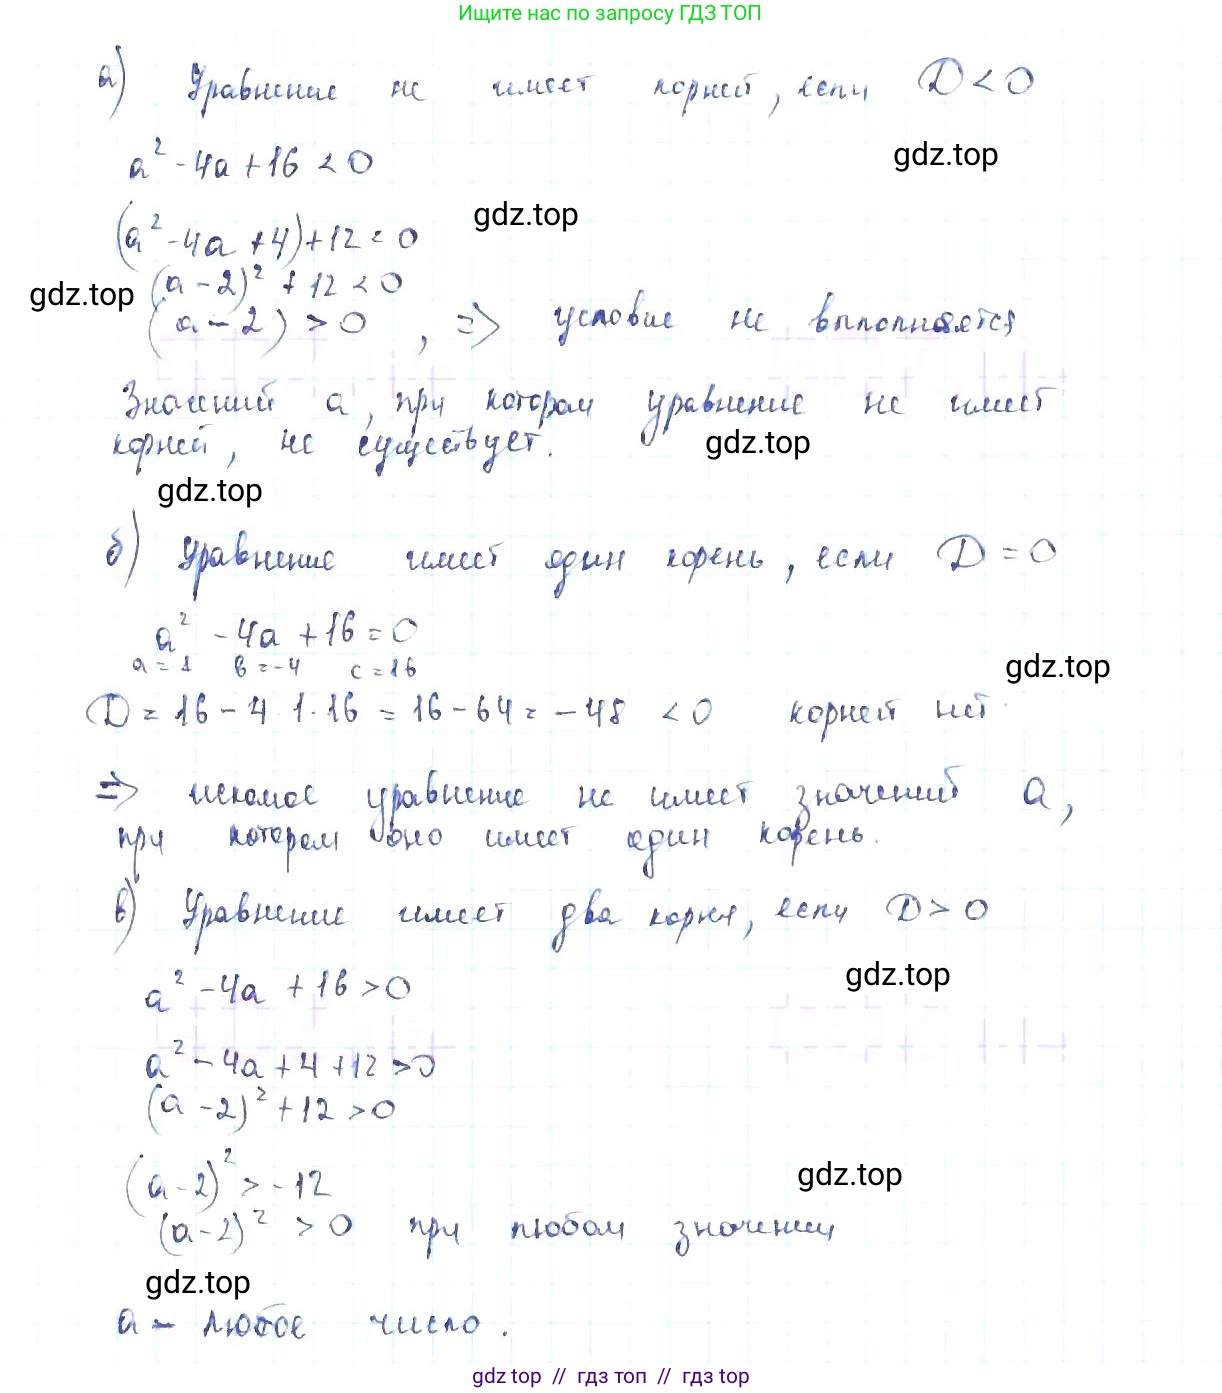 Ищите нас по запросу ГДЗ ТОП
а) Уравнение не имеет корней, если D < 0
a² - 4a + 16 < 0
gdz.top
(a² - 4a + 4) + 12 < 0
gdz.top
(a - 2)² + 12 < 0
gdz.top
(a - 2) > 0, => условие не выполняется
Значений a, при котором уравнение не имеет
корней, не существует.
gdz.top
gdz.top
б) Уравнение имеет один корень, если D = 0
a² - 4a + 16 = 0
a = 1 в = -4 c = 16
gdz.top
D = 16 - 4·1·16 = 16 - 64 = -48 < 0 корней нет
=> искомое уравнение не имеет значений a,
при котором оно имеет один корень.
в) Уравнение имеет два корня, если D > 0
gdz.top
a² - 4a + 16 > 0
a² - 4a + 4 + 12 > 0
(a - 2)² + 12 > 0
(a - 2)² > -12
gdz.top
(a - 2)² > 0 при любом значении
gdz.top
a - любое число.
gdz top // гдз топ // гдз top